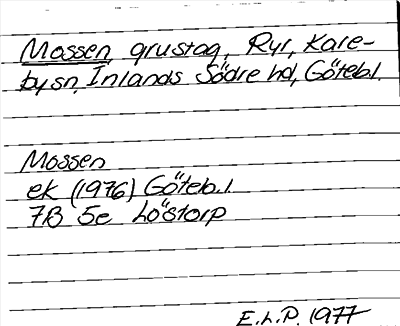 Mossen, grustag, Ryr, Kare-
by sn, Inlands Södre hd, Göteb.l.
Mossen
ek (1976) Göteb.l
7B 5e Löstorp
E.L.P. 1977